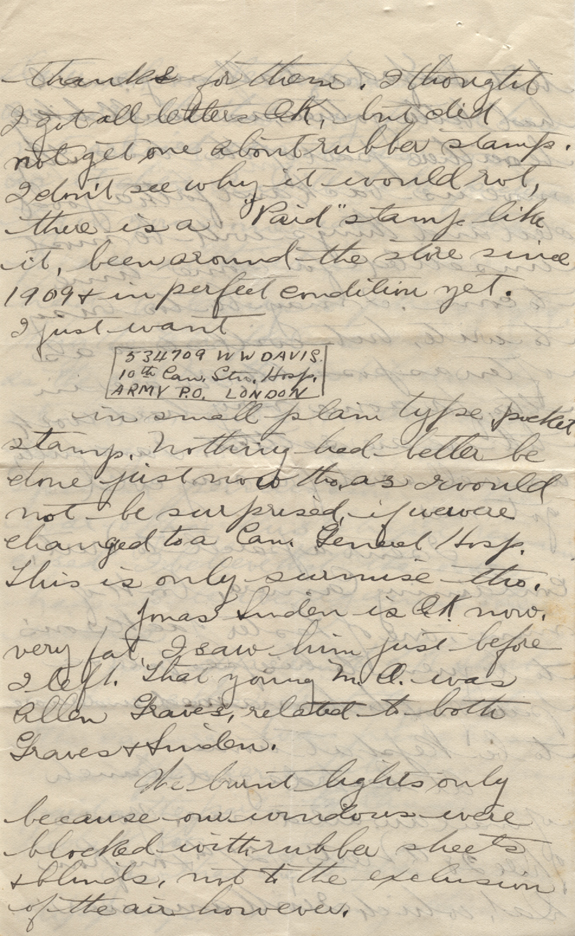 Thanks for them. I thought
I got all letters OK, but did
not get one about rubber stamp.
I don't see why it would rot,
there is a "Paid" stamp like
it, been around the store since
1909 & in perfect condition yet.
I just want
534709 W W DAVIS.
10th Can. Stn. Hosp.
ARMY P.O. LONDON
in small plain type, pocket
stamp. Nothing had better be
done just now tho, as I would
not be surprised if we were
changed to a Can General Hosp.
This is only surmise tho.
Jonas Linden is OK now.
very fat, I saw him just before
I left. That young M.O. was
Allen Graves, related to both
Graves & Linden.
We burnt lights only
because our windows were
blocked with rubber sheets
& blinds, not to the exclusion
of the air however.